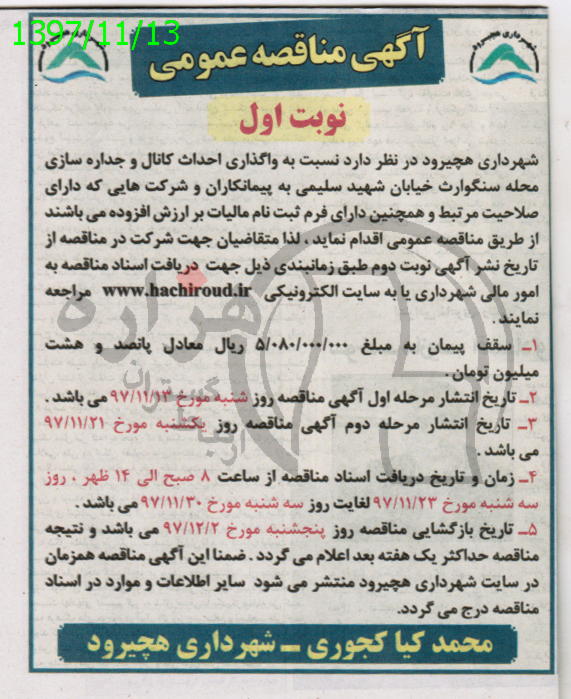 1397/11/13
آگهی مناقصه عمومی
شهرداری هچیرود
نوبت اول
شهرداری هچیرود در نظر دارد نسبت به واگذاری احداث کانال و جداره سازی
محله سنگوارث خیابان شهید سلیمی به پیمانکاران و شرکت هایی که دارای
صلاحیت مرتبط و همچنین دارای فرم ثبت نام مالیات بر ارزش افزوده می باشند
از طریق مناقصه عمومی اقدام نماید ، لذا متقاضیان جهت شرکت در مناقصه از
تاریخ نشر آگهی نوبت دوم طبق زمانبندی ذیل جهت دریافت اسناد مناقصه به
امور مالی شهرداری یا به سایت الکترونیکی www.hachiroud.ir مراجعه
نمایند .
۱ــ سقف پیمان به مبلغ ۵/۰۸۰/۰۰۰/۰۰۰ ریال معادل پانصد و هشت
میلیون تومان .
۲ــ تاریخ انتشار مرحله اول آگهی مناقصه روز شنبه مورخ ۹۷/۱۱/۱۳ می باشد .
۳ــ تاریخ انتشار مرحله دوم آگهی مناقصه روز یکشنبه مورخ ۹۷/۱۱/۲۱
می باشد .
۴ــ زمان و تاریخ دریافت اسناد مناقصه از ساعت ۸ صبح الی ۱۴ ظهر ، روز
سه شنبه مورخ ۹۷/۱۱/۲۳ لغایت روز سه شنبه مورخ ۹۷/۱۱/۳۰ می باشد .
۵ــ تاریخ بازگشایی مناقصه روز پنجشنبه مورخ ۹۷/۱۲/۲ می باشد و نتیجه
مناقصه حداکثر یک هفته بعد اعلام می گردد . ضمنا این آگهی مناقصه همزمان
در سایت شهرداری هچیرود منتشر می شود سایر اطلاعات و موارد در اسناد
مناقصه درج می گردد.
محمد کیا کجوری ــ شهرداری هچیرود
هزاره